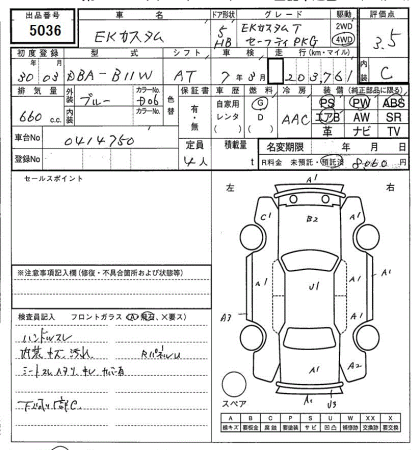 出品番号 車名 ドア形状 グレード 駆動 評価点
5036 EKカスタム 5 HB EKカスタム T セーフティPKG 2WD 4WD 3.5
初度登録 型式 シフト 車検 走行(km・マイル) 内装
30年 03月 DBA-B11W AT 7年 3月 203,761 C
排気量 外装 カラーNo. 色替 保証書 車歴 燃料 冷房 装備(純正部品に限る)
660 c.c. ブルー D06 有・無 自家用 レンタ ( ) G D ( ) AAC PS PW ABS
内装 カラーNo. エアB AW SR
革 ナビ TV
車台No 0414750 定員 積載量 名変期限 年 月 日
登録No 4人 t R料金 未預託・預託済 8060円
セールスポイント
左 右
A1
C1 B2
A1 U1 A1 A1
A3
A1 A2
A1 U3
スペア
※注意事項記入欄(修復・不具合箇所および状態等)
検査員記入 フロントガラス (A, 飛石, ×要ス)
ハンドルスレ
内装キズ、汚れ
シートスレ
下廻り
A B C P S U W XX X
線キズ 要板金 腐蝕 要塗装 サビ 凹凸 補修跡 交換跡 要交換